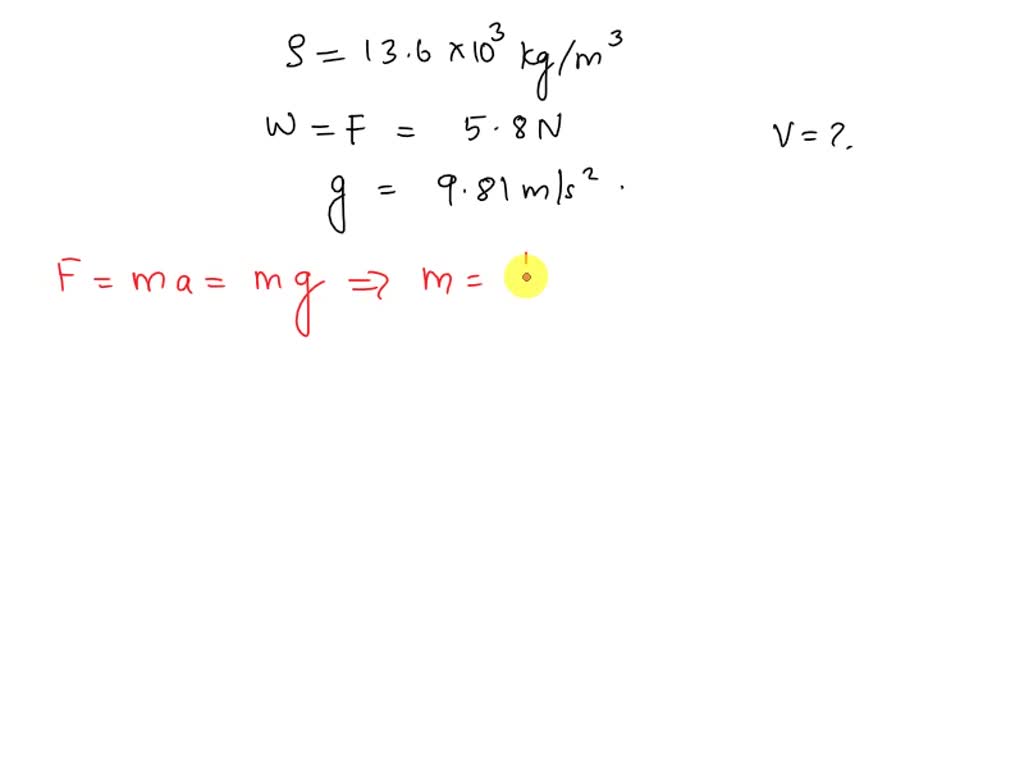 ρ = 13.6 ×10³ kg/m³
W = F = 5.8 N
V = ?.
g = 9.81 m/s².
F = ma = mg ⇒ m =